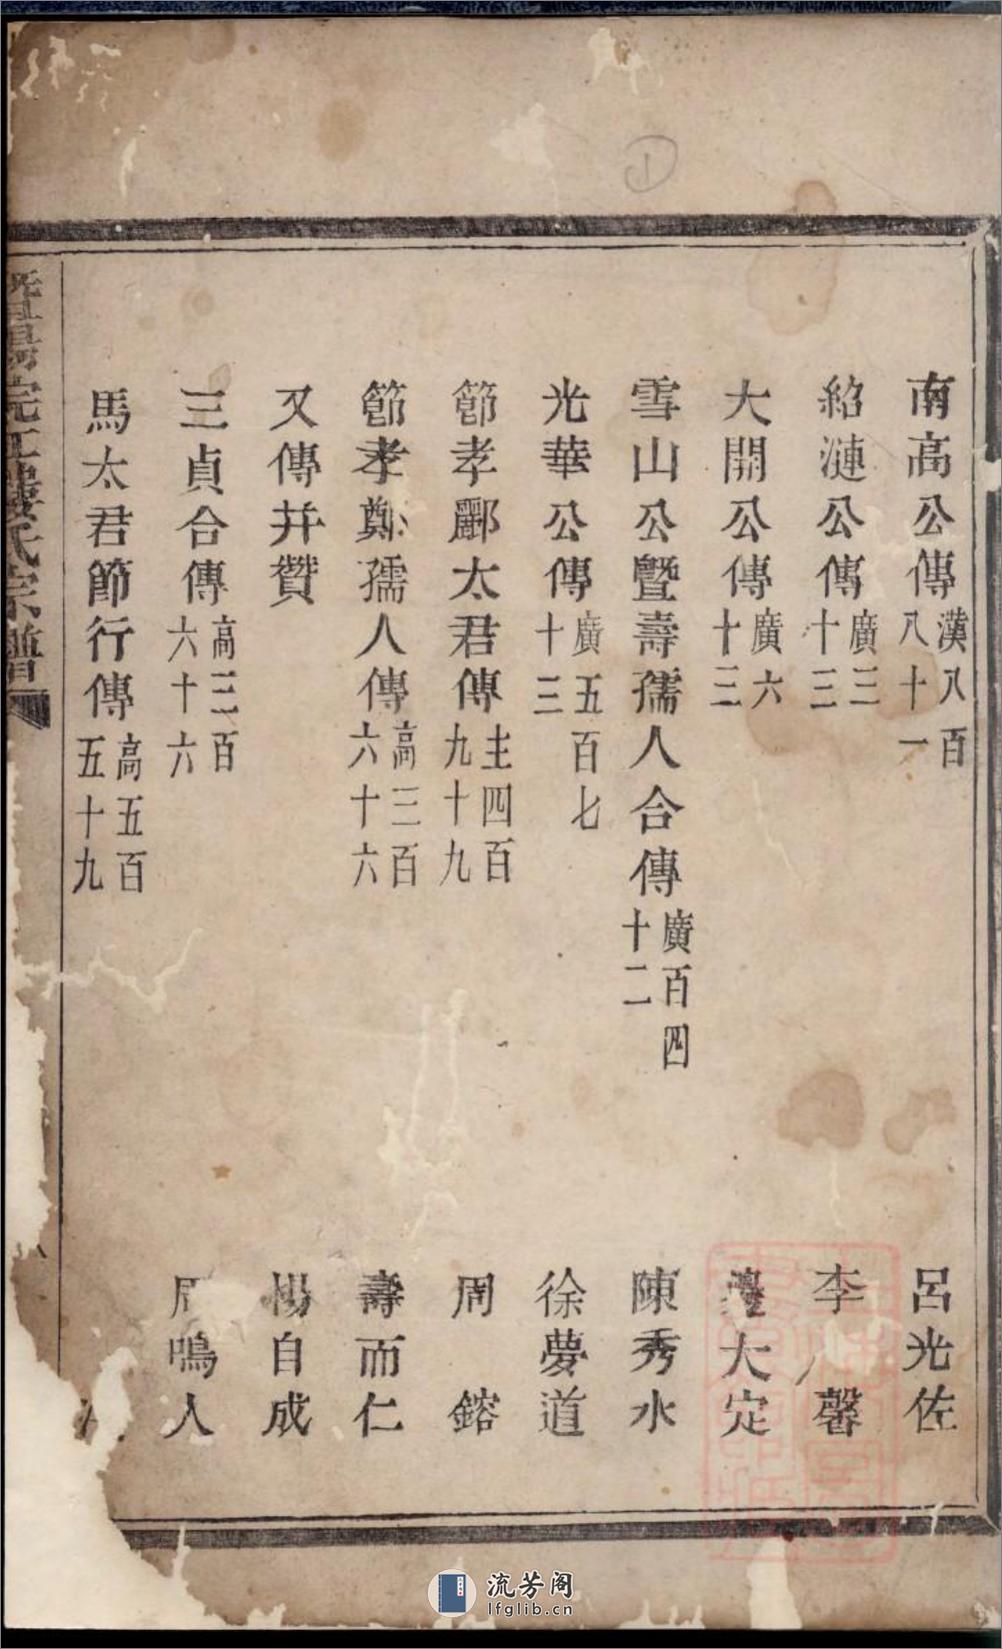 南高公傳 漢八百八十一 呂光佐
紹漣公傳 廣三十三 李馨
大開公傳 廣六十三 大定
雪山公曁壽孺人合傳 廣百四十二 陳秀水
光華公傳 廣五百七十三 徐夢道
節孝酈太君傳 主四百九十九 周鎔
節孝鄭孺人傳 高三百六十六 壽而仁
又傳并贊 楊自成
三貞合傳 高三百六十六 周鳴人
馬太君節行傳 高五百五十九
暨陽 樓氏宗譜
①
流芳阁
lfglib.cn